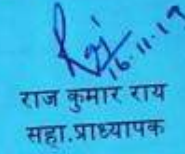 16.11.19
राज कुमार राय
सहा.प्राध्यापक